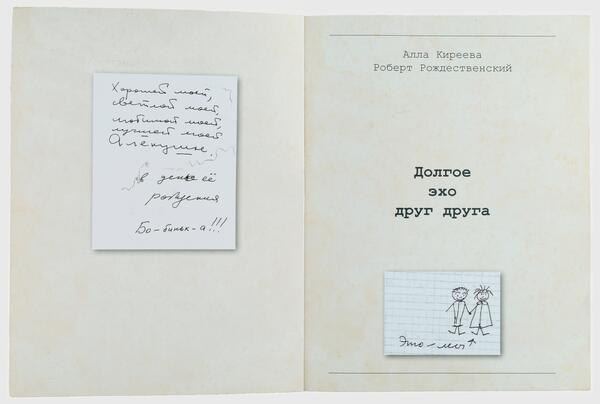 Хорошей моей,
светлой моей,
любимой моей,
лучшей моей
Алёнушке.
в день её
рождения
Бо-биньк-а!!!
Алла Киреева
Роберт Рождественский
Долгое
эхо
друг друга
Это – мы